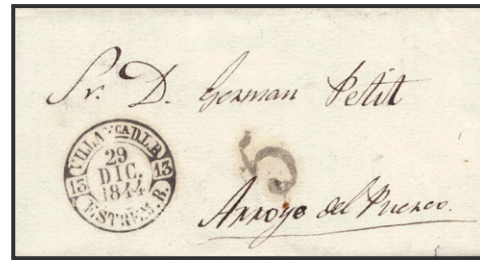 Sr. D. German Petit
VILLAᶠᶜᵃDLB.
29
DIC.
1844
13
13
ESTREM.B.
5
Arroyo del Puerco.